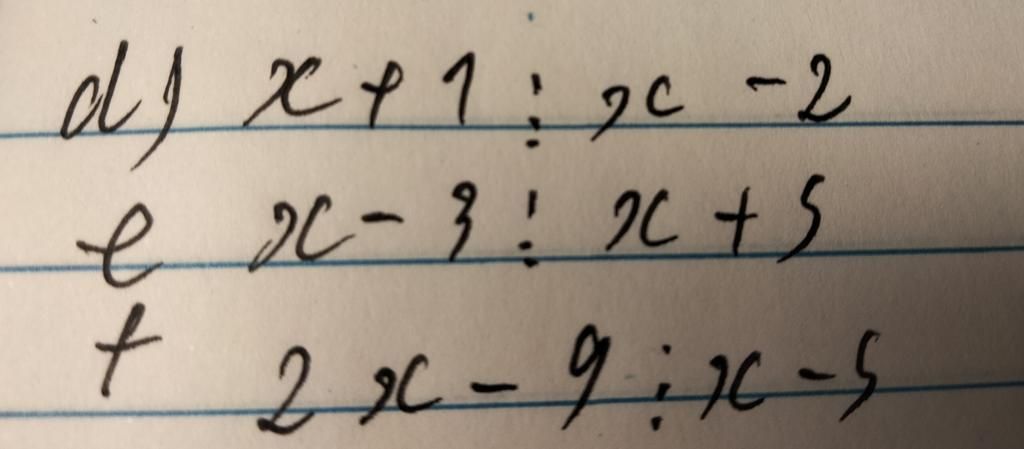 d) x + 1 ⋮ x - 2
e x - 3 ⋮ x + 5
f 2x - 9 ⋮ x - 5